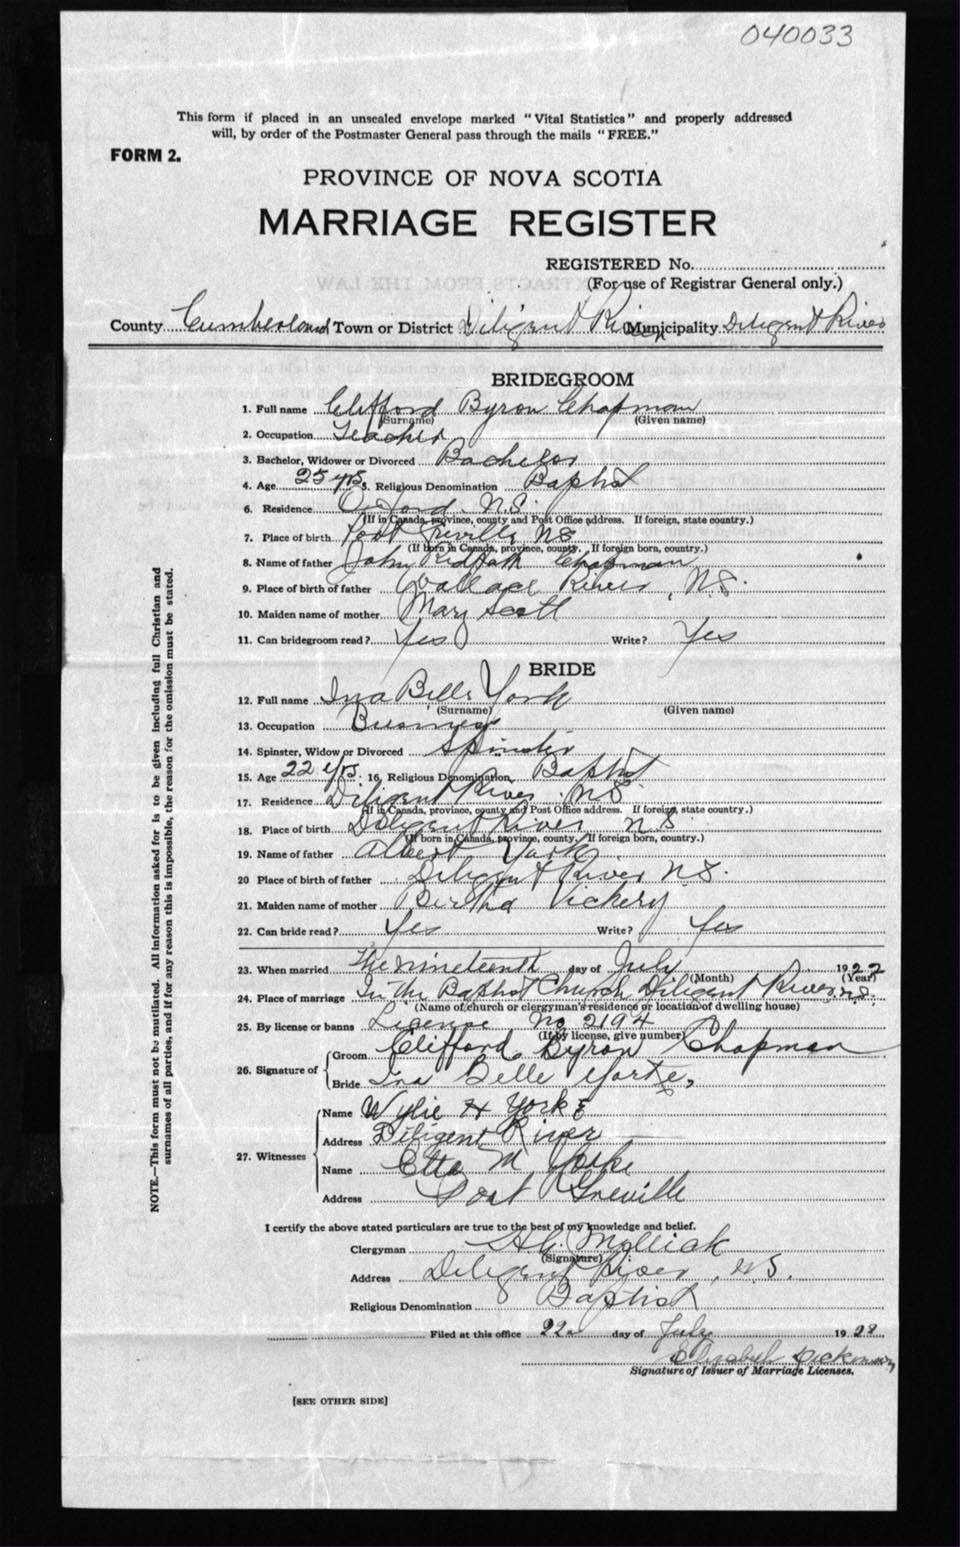 040033
This form if placed in an unsealed envelope marked "Vital Statistics" and properly addressed
will, by order of the Postmaster General pass through the mails "FREE."
FORM 2.
PROVINCE OF NOVA SCOTIA
MARRIAGE REGISTER
REGISTERED No.
(For use of Registrar General only.)
County Cumberland Town or District Diligent River Municipality Diligent River
BRIDEGROOM
1. Full name Clifford Byron Chapman
(Surname) (Given name)
2. Occupation Teacher
3. Bachelor, Widower or Divorced Bachelor
4. Age 25 yrs 5. Religious Denomination Baptist
6. Residence Oxford N.S.
(If in Canada, province, county and Post Office address. If foreign, state country.)
7. Place of birth Port Greville NS
(If born in Canada, province, county. If foreign born, country.)
8. Name of father John Chapman
9. Place of birth of father Wallace River, N.S.
10. Maiden name of mother Mary Scott
11. Can bridegroom read? Yes Write? Yes
BRIDE
12. Full name Ina Belle York
(Surname) (Given name)
13. Occupation Business
14. Spinster, Widow or Divorced Spinster
15. Age 22 yrs. 16. Religious Denomination Baptist
17. Residence Diligent River NS
(If in Canada, province, county and Post Office address. If foreign, state country.)
18. Place of birth Diligent River NS
(If born in Canada, province, county, If foreign born, country.)
19. Name of father Albert York
20 Place of birth of father Diligent River N.S.
21. Maiden name of mother Bertha Vickery
22. Can bride read? Yes Write? Yes
23. When married The nineteenth day of July 19
(Month) (Year)
24. Place of marriage In The Baptist Church Diligent River, N.S.
(Name of church or clergyman's residence or location of dwelling house)
25. By license or banns License No 2194
(If by license, give number)
26. Signature of Groom Clifford Byron Chapman
Bride Ina Belle Yorke
27. Witnesses Name Wylie H Yorke
Address Diligent River
Name Etta M Yorke
Address Port Greville
I certify the above stated particulars are true to the best of my knowledge and belief.
Clergyman
(Signature)
Address Diligent River, N.S.
Religious Denomination Baptist
Filed at this office 22 day of July 1928
Elizabeth
Signature of Issuer of Marriage Licenses.
[SEE OTHER SIDE]
NOTE.—This form must not be mutilated. All information asked for is to be given including full Christian and
surnames of all parties, and if for any reason this is impossible, the reason for the omission must be stated.